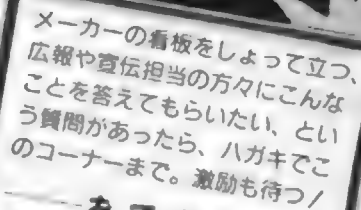 メーカーの看板をしょって立つ、
広報や宣伝担当の方々にこんな
ことを答えてもらいたい、とい
う質問があったら、ハガキでこ
のコーナーまで。激励も待つ！